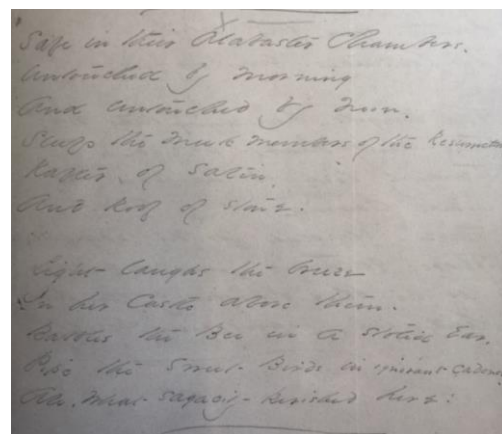 Safe in their Alabaster Chambers.
Untouched by morning
And untouched by noon.
Sleep the meek members of the Resurrection
Rafter of Satin
And Roof of Stone.
Light laughs the breeze
In her Castle above them.
Babbles the Bee in a stolid Ear.
Pipe the Sweet Birds in ignorant cadence
Ah, what sagacity perished here!